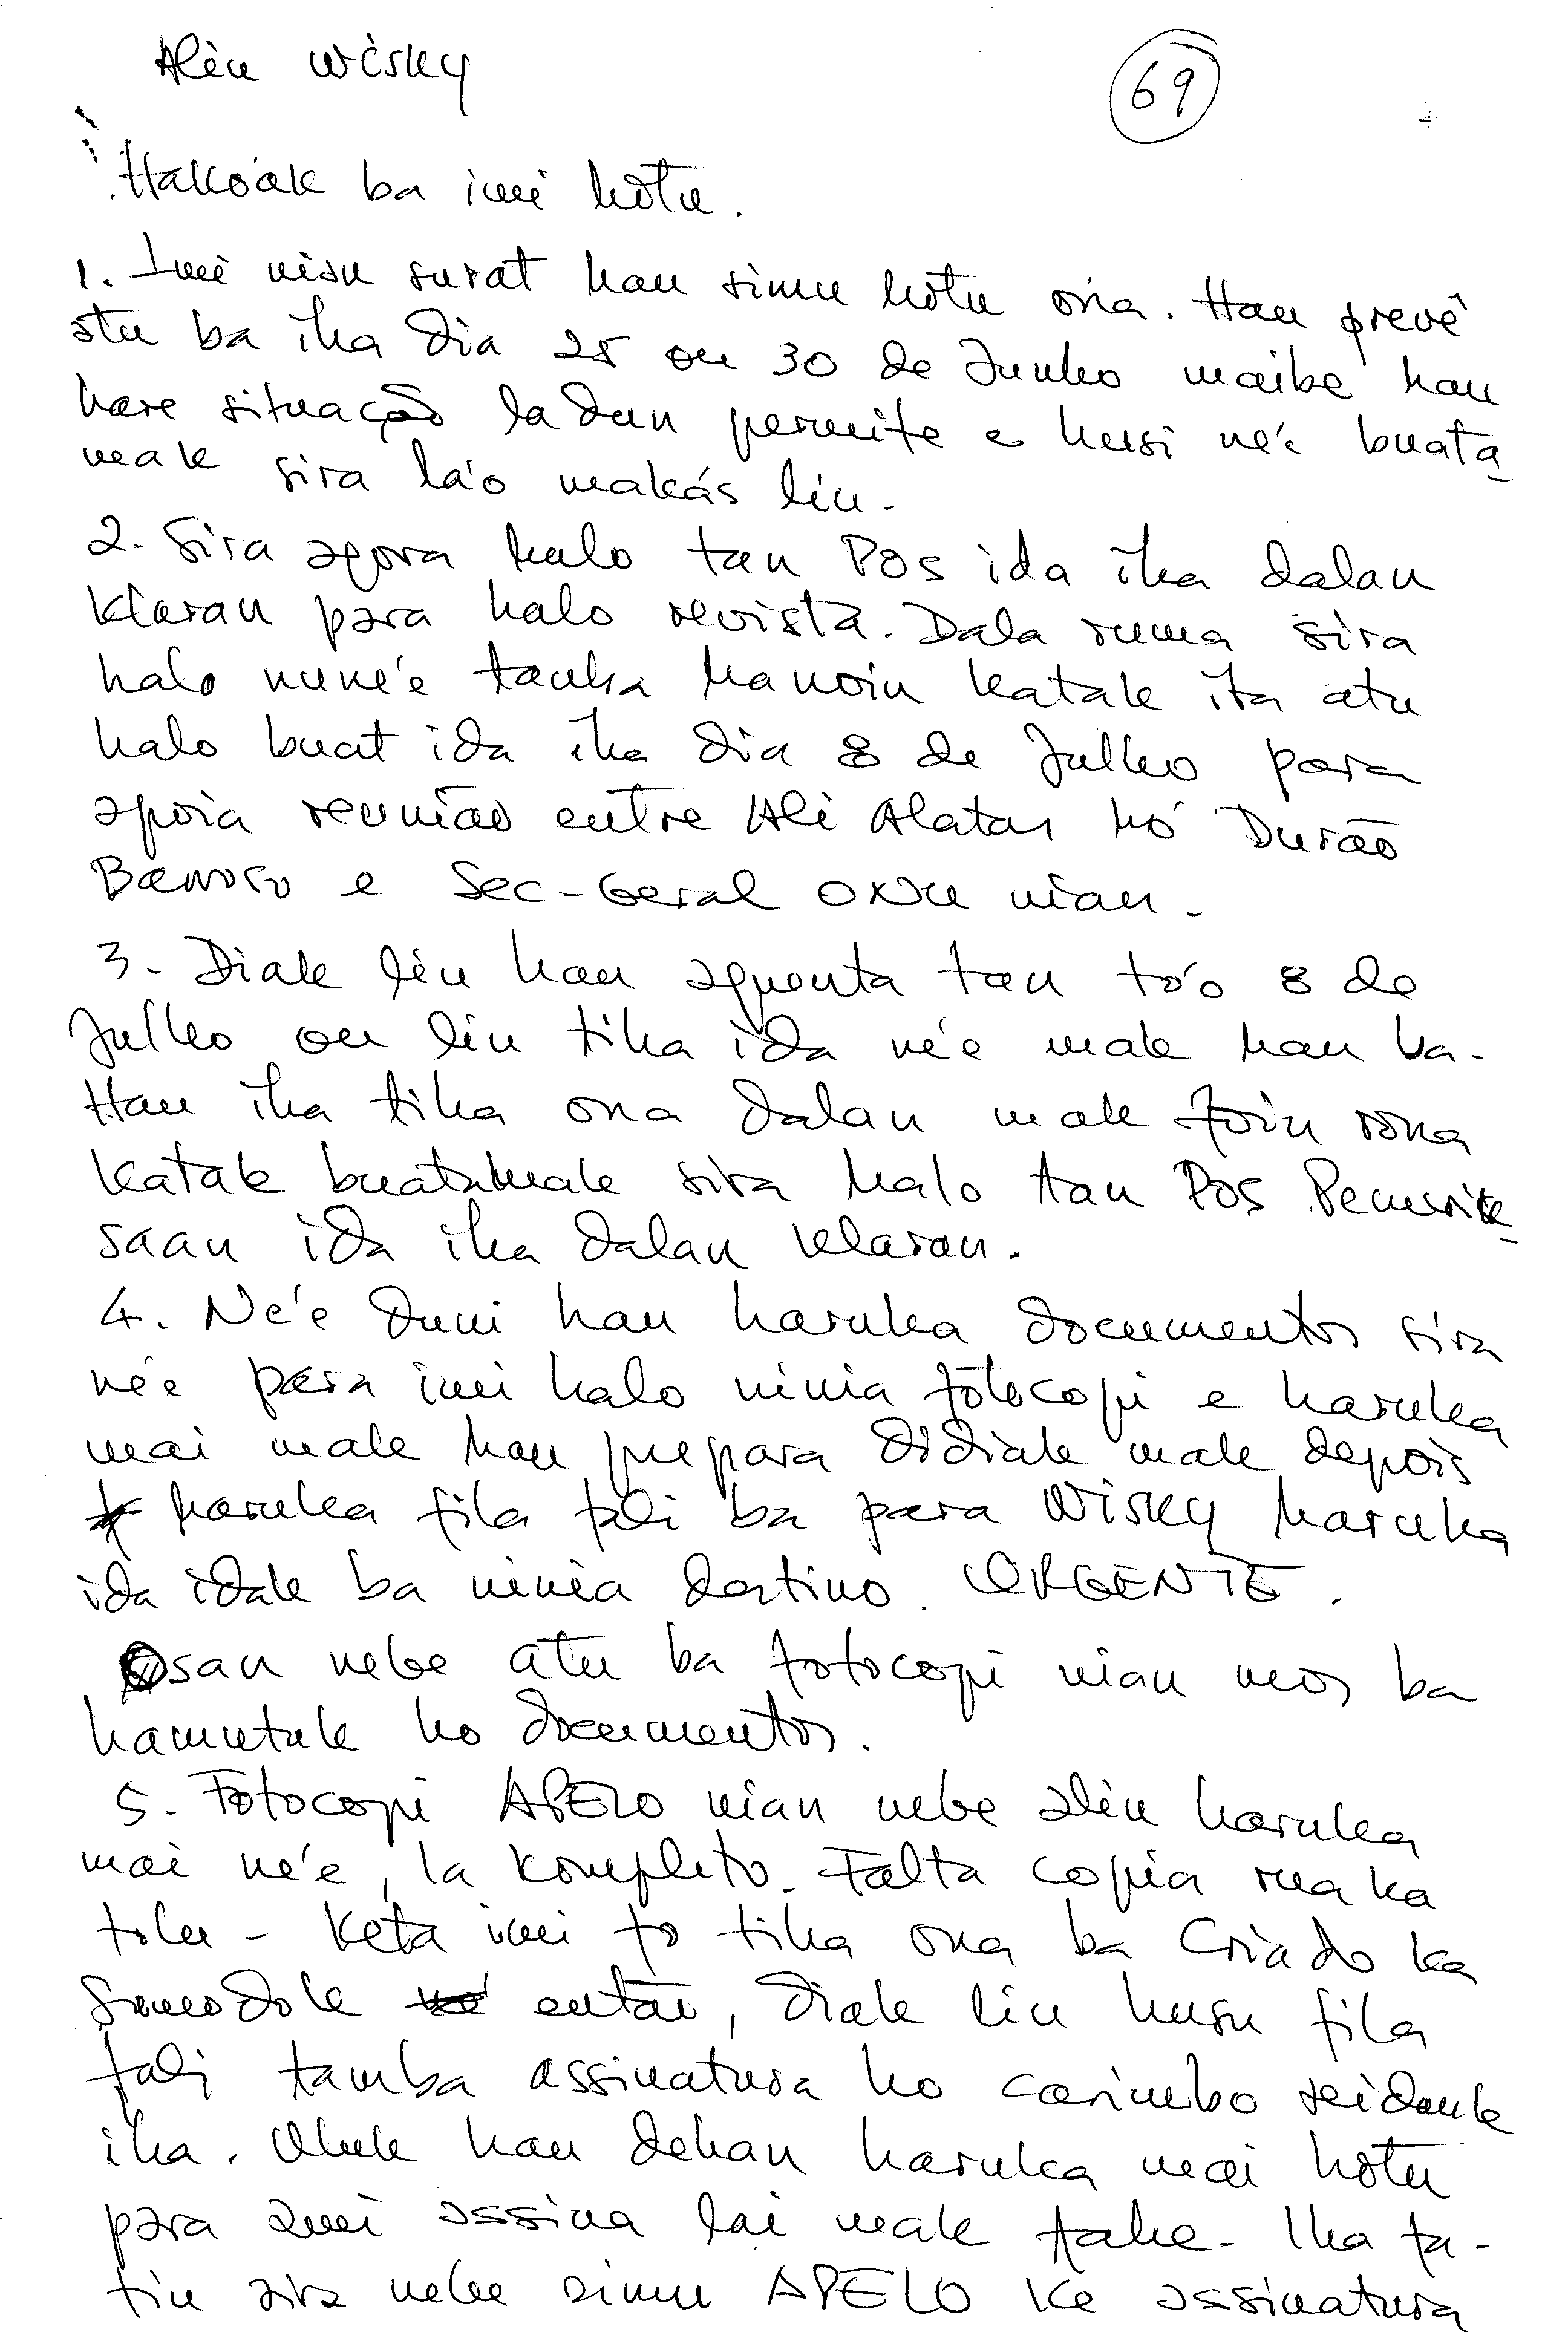 Alin Wisky
69
Hakoak ba imi hotu.
1. Imi nian surat hau simu hotu ona. Hau prevê
atu ba iha dia 25 ou 30 de Junho maibe hau
hare situação ladun permite e husi ne'e buata
mak sira la'o makás liu.
2. Sira agora halo tan Pos ida iha dalan
klaran para halo revista. Dala ruma sira
halo nune'e tanba hanoin katak ita atu
halo buat ida iha dia 8 de Julho para
apoia reunião entre Ali Alatas hó Durão
Barroso e Sec-Geral ONU nian.
3. Diak liu hau aguenta tan to'o 8 de
Julho ou liu tiha ida ne'e mak hau ba.
Hau iha tiha ona dalan mak foin rona
katak buat mak sira halo tan Pos Pemerik-
saan ida iha dalan klaran.
4. Ne'e duni hau haruka documentos sira
ne'e para imi halo ninia fotocopi e haruka
mai mak hau prepara didiak mak depois
haruka fila fali ba para Wisky haruka
ida idak ba ninia destino. URGENTE.
Osan nebe atu ba fotocopi nian mos ba
hamutuk ho documentos.
5. Fotocopi APELO nian nebe alin haruka
mai ne'e, la kompleto. Falta copia rua ka
tolu - Keta imi fo tiha ona ba Criado ka
Sumodok então, diak liu husu fila
fali tamba assinatura ho carimbo seidauk
iha. Uluk hau dehan haruka mai hotu
para ami assina lai mak fahe. Iha fa-
tin sira nebe simu APELO ke assinatura